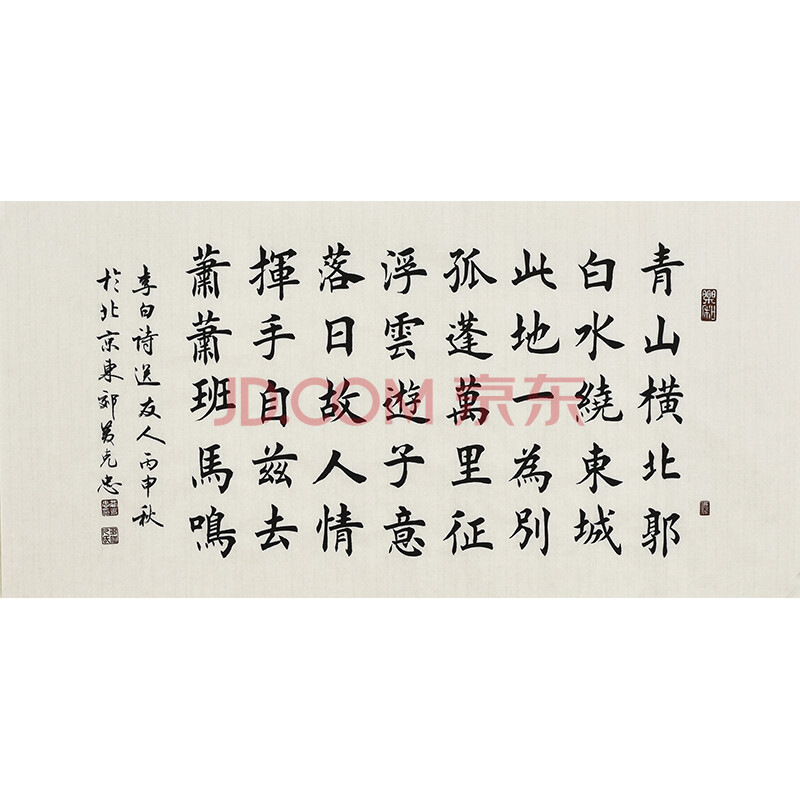 青山橫北郭
白水繞東城
此地一為別
孤蓬萬里征
浮雲遊子意
落日故人情
揮手自茲去
蕭蕭班馬鳴
李白詩送友人丙申秋
於北京東郊克忠
JD.COM 京东